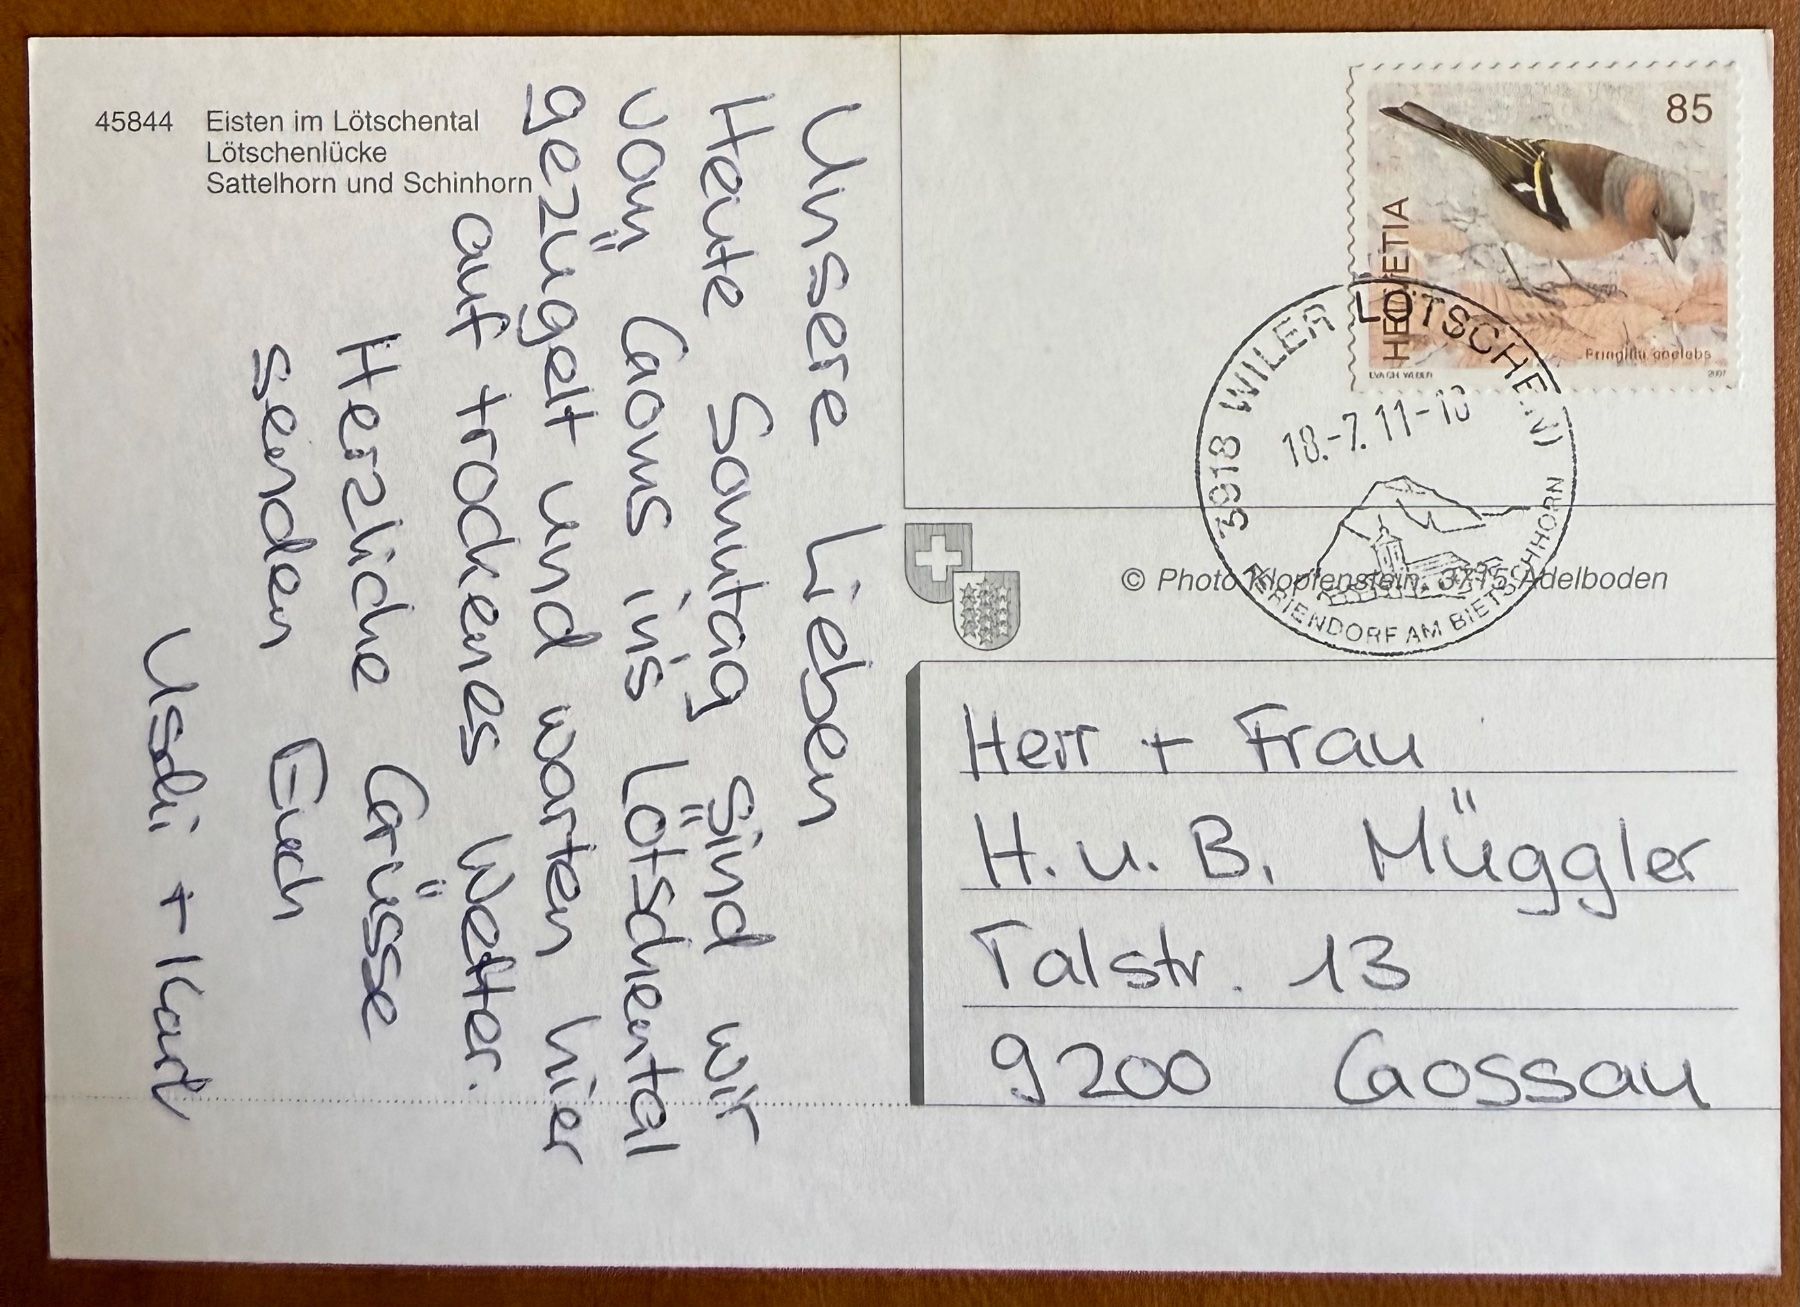 45844 Eisten im Lötschental
Lötschenlücke
Sattelhorn und Schinhorn
Unsere Lieben
Heute Sonntag sind wir
vom Goms in's Lötschental
gezügelt und warten hier
auf trockenes Wetter.
Herzliche Grüsse
senden Euch
Uschi + Karl
85
HELVETIA
Fringilla coelebs
2007
3918 WILER (LÖTSCHEN)
18.-7.11-18
FERIENDORF AM BIETSCHHORN
© Photo Klopfenstein, 3715 Adelboden
Herr + Frau
H. u. B. Müggler
Talstr. 13
9200 Gossau